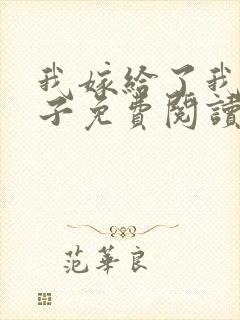 我嫁给了我
子免費閱讀
范華良